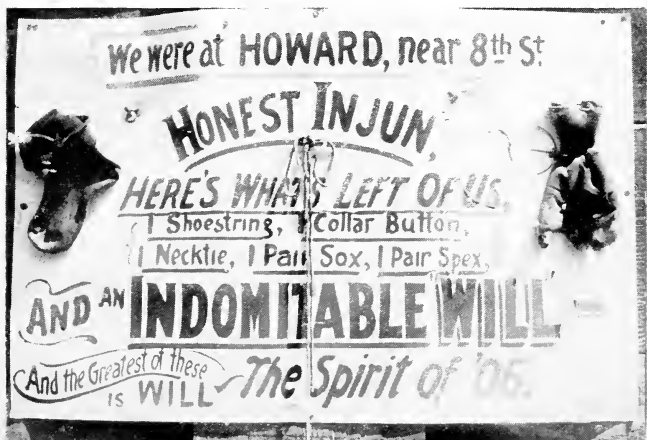 We were at HOWARD, near 8th St.
HONEST INJUN,
HERE'S WHAT'S LEFT OF US,
1 Shoestring, 1 Collar Button,
1 Necktie, 1 Pair Sox, 1 Pair Spex,
AND AN INDOMITABLE "WILL"
And the Greatest of these
IS WILL - The Spirit of '06.